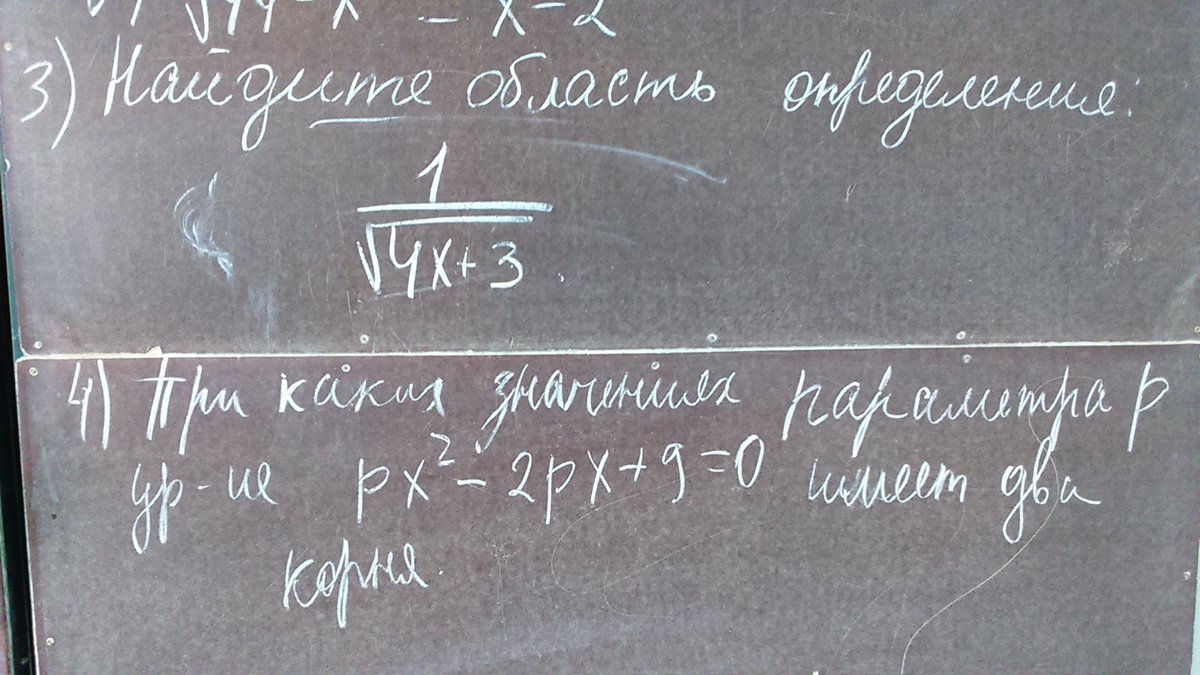 = x-2
3) Найдите область определения:
1
√4x+3
4) При каких значениях параметра p
ур-ие px²-2px+9=0 имеет два
корня.